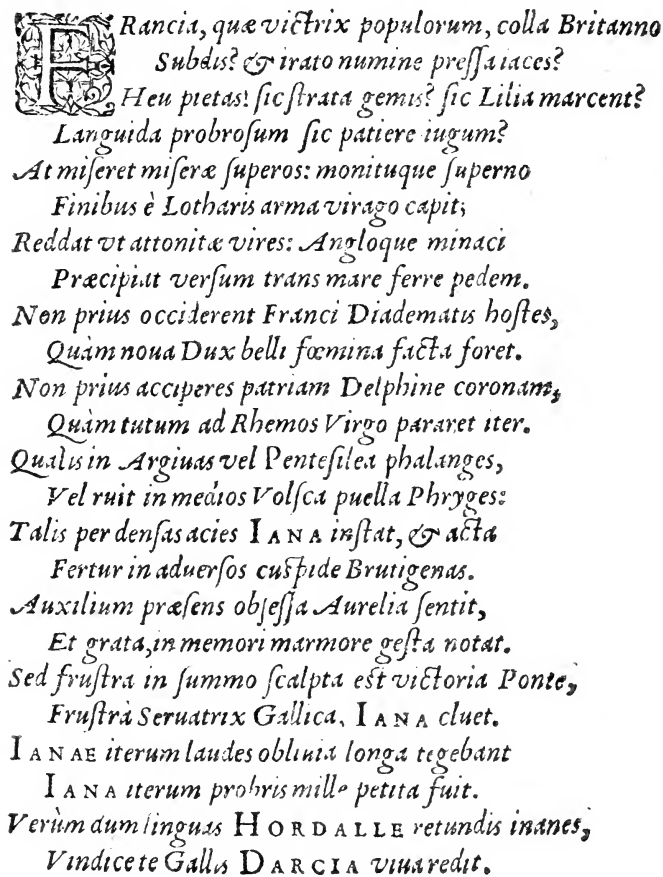 FRancia, quæ victrix populorum, colla Britanno
Subdis? & irato numine preſſa iaces?
Heu pietas! ſic ſtrata gemis? ſic Lilia marcent?
Languida probroſum ſic patiere iugum?
At miſeret miſeræ ſuperos: monituque ſuperno
Finibus è Lotharis arma virago capit;
Reddat vt attonitæ vires: Angloque minaci
Præcipiat verſum trans mare ferre pedem.
Non prius occiderent Franci Diadematis hoſtes,
Quàm noua Dux belli fœmina facta foret.
Non prius acciperes patriam Delphine coronam,
Quàm tutum ad Rhemos Virgo pararet iter.
Qualis in Argiuas vel Penteſilea phalanges,
Vel ruit in medios Volſca puella Phryges:
Talis per denſas acies IANA inſtat, & acta
Fertur in aduerſos cuſpide Brutigenas.
Auxilium præſens obſeſſa Aurelia ſentit,
Et grata, in memori marmore geſta notat.
Sed fruſtra in ſummo ſcalpta eſt victoria Ponte,
Fruſtrà Seruatrix Gallica, IANA cluet.
IANAE iterum laudes obliuia longa tegebant
IANA iterum probris mille petita fuit.
Verùm dum linguas HORDALLE retundis inanes,
Vindice te Gallis DARCIA viua redit.